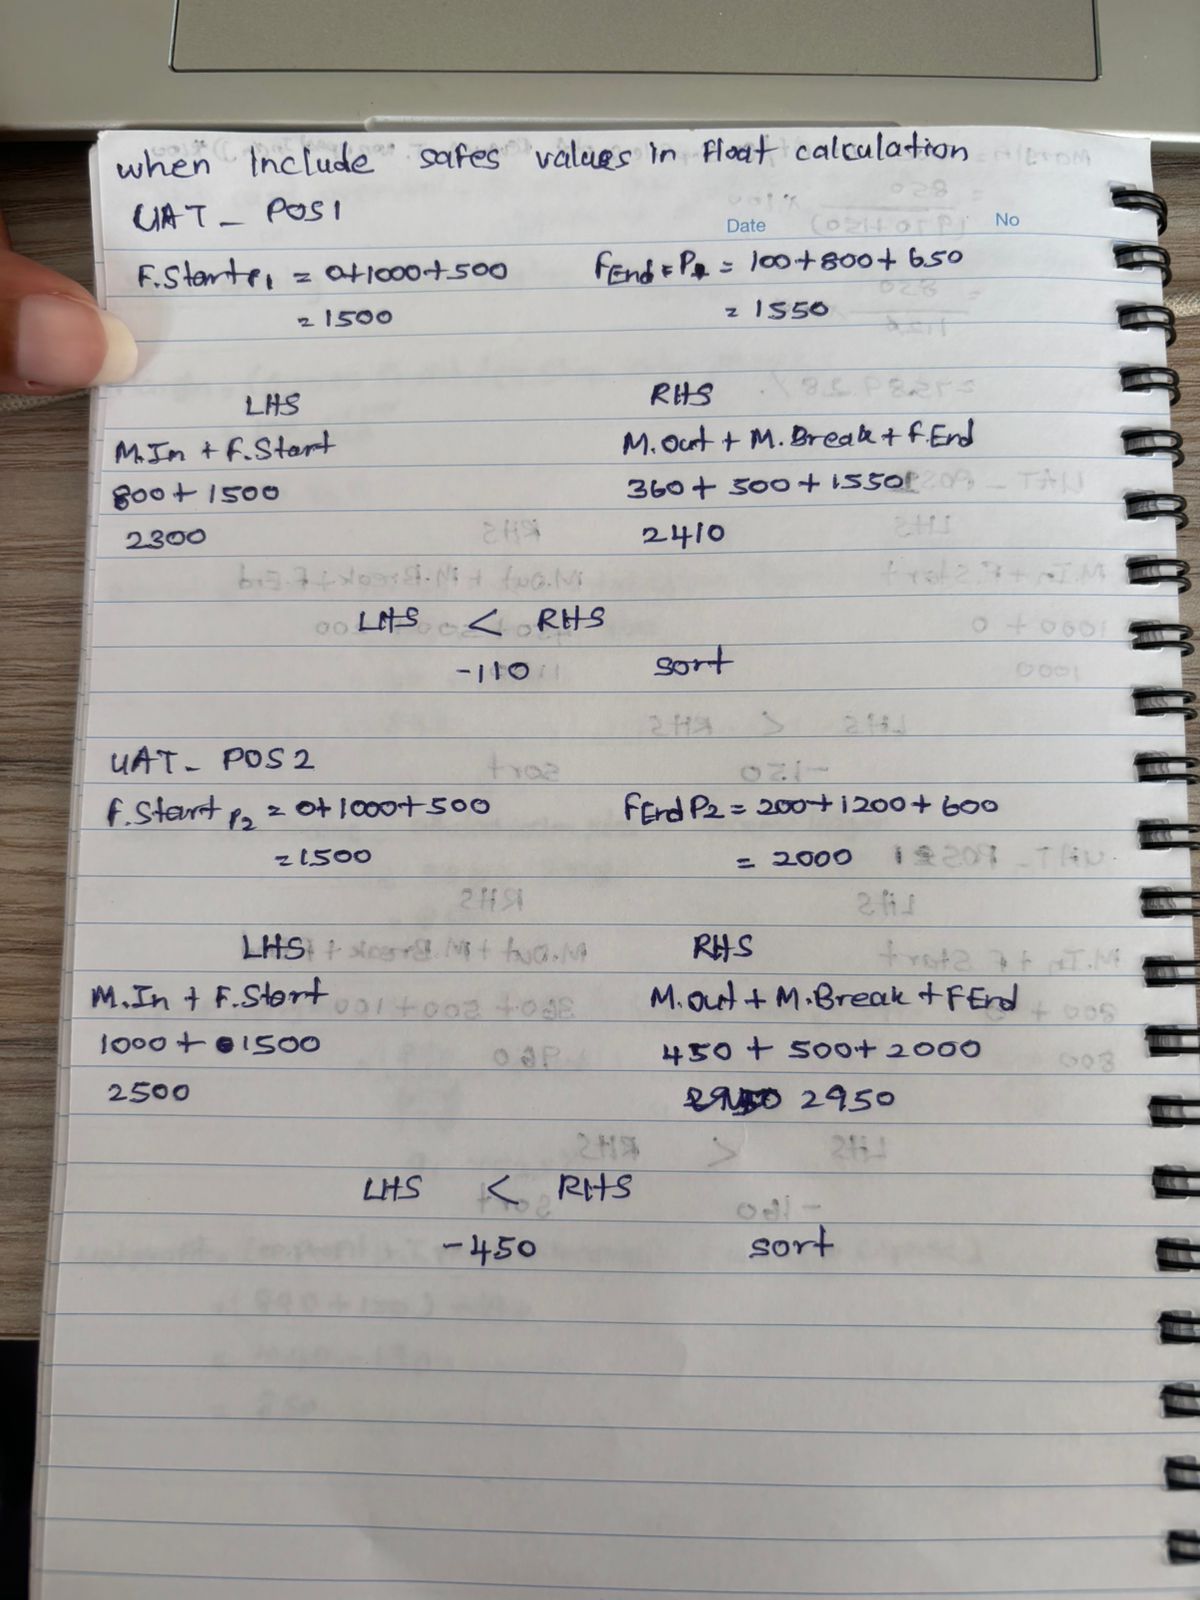 when Include safes values in float calculation
UAT_ POS1
Date No
F.Start P1 = 0+1000+500 F.End = P = 100+800+650
= 1500 = 1550
LHS RHS
M.In + F.Start M.Out + M.Break + F.End
800 + 1500 360 + 500 + 1550
2300 2410
LHS < RHS
-110 sort
UAT_ POS2
F.Start P2 = 0+1000+500 F.End P2 = 200+1200+600
= 1500 = 2000
LHS RHS
M.In + F.Start M.out + M.Break + F.End
1000 + 1500 450 + 500+ 2000
2500 2950
LHS < RHS
-450 sort